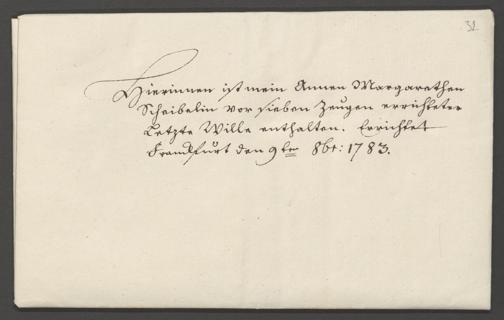 32
Hierinnen ist mein Annen Margarethen
Scheibelin vor sieben Zeugen errichteter
Letzte Wille enthalten. Errichtet
Franckfurt den 9ten 8br: 1783.